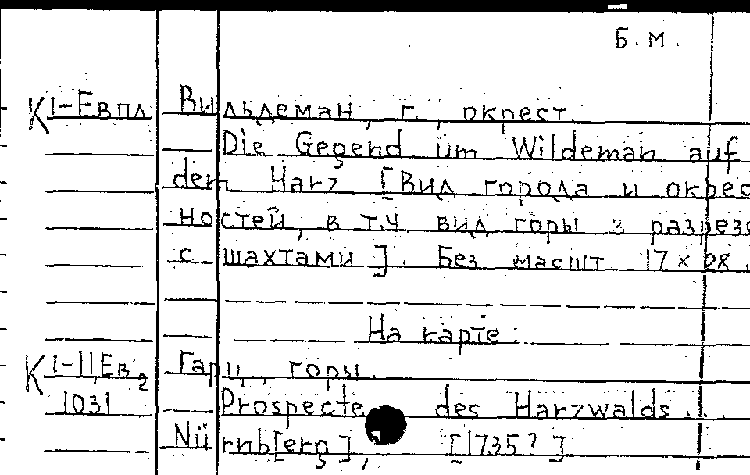 Б.М.
К1-Евпл Вильдеман, г., окрест.
Die Gegend um Wildeman auf
dem Harz [Вид города и окрес
ностей, в т.ч. вид горы в разрезе
с шахтами]. Без масшт 17 × 28.
На карте:
К1-II,Ев2 Гарц, горы.
1031 Prospecte des Harzwalds...
Nürnb[erg], [1735?]